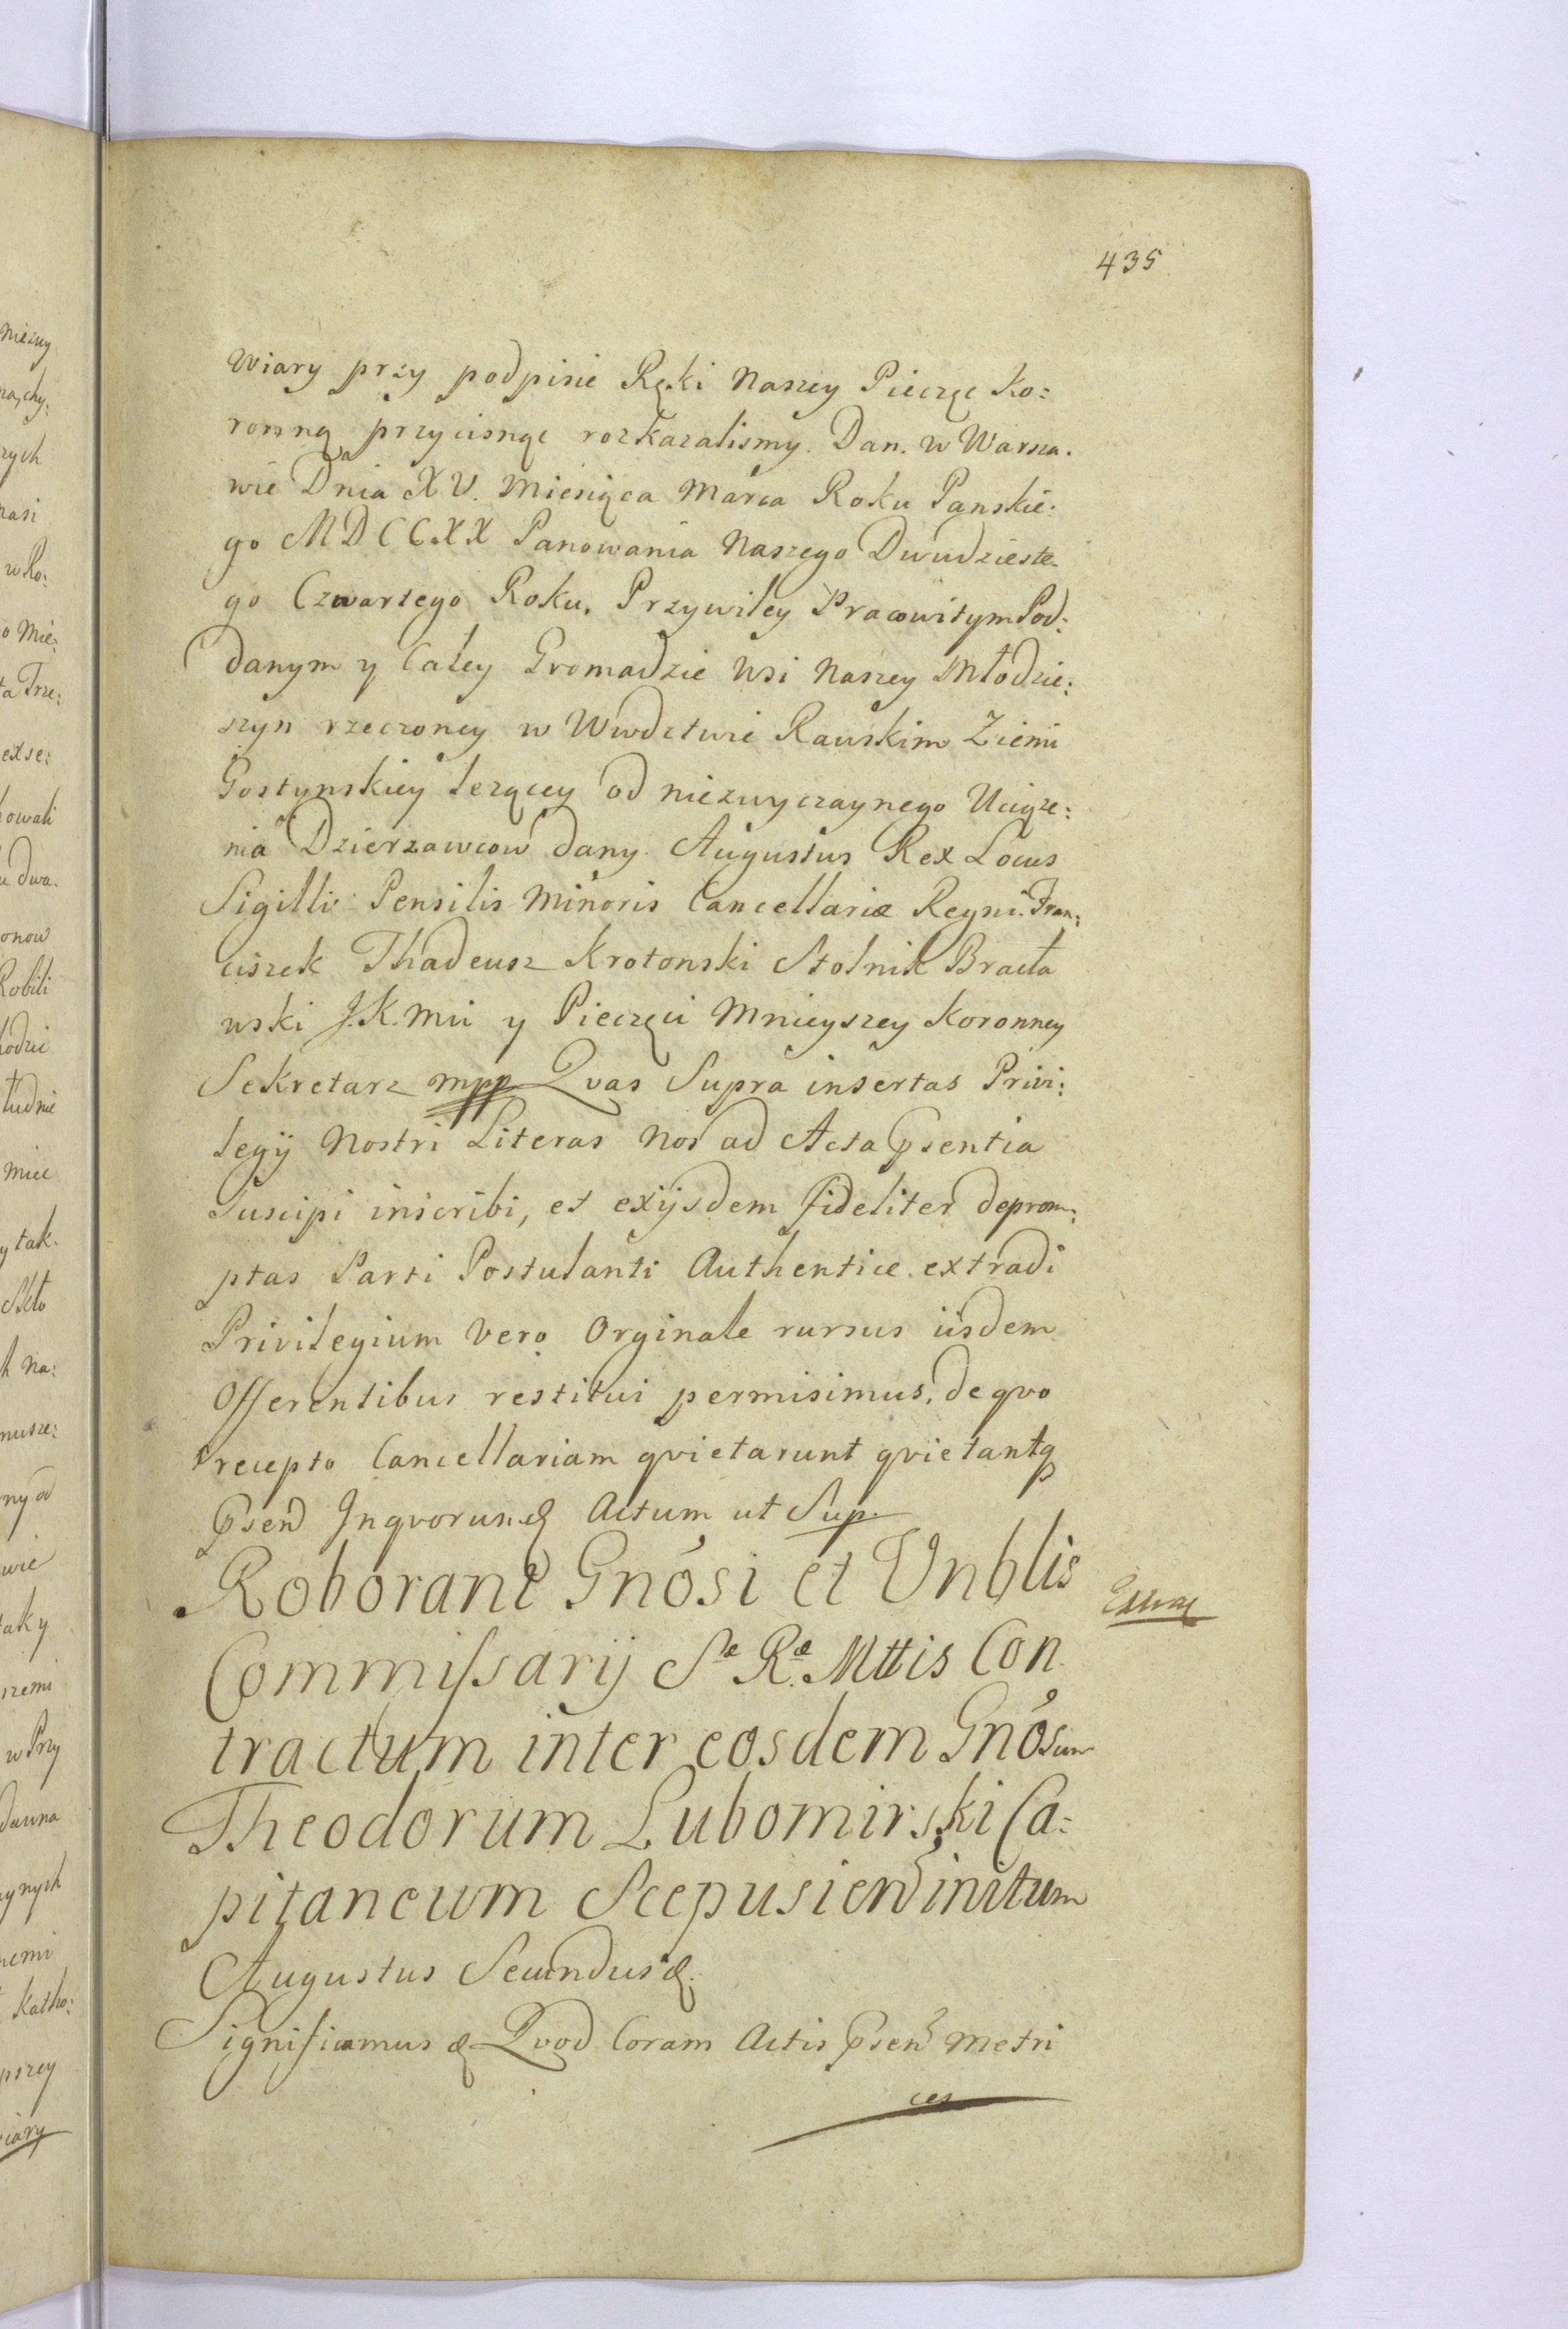 435
Wiary przy podpisie Ręki Naszey Pieczęc Ko:
ronną przycisnąc rozkazalismy. Dan. w Warsza.
wie Dnia XV. Miesiąca Marca Roku Panskie:
go MDCCXX Panowania Naszego Dwudzieste.
go Czwartego Roku. Przywiley Pracowitym Pod:
danym y Całey Gromadzie Wsi Naszey Młodzie:
szyn rzeczoney w Wwdztwie Rawskim Ziemi
Gostynskiey lezącey od niezwyczaynego Uciąze:
nia Dzierzawcow dany. Augustus Rex Locus
Sigilli Pensilis Minoris Cancellariæ Regni. Fran:
ciszek Thadeusz Krotonski Stolnik Bracła
wski J.K.Mci y Pieczęci Mnieyszey Koronney
Sekretarz mpp Qvas Supra insertas Privi:
legij Nostri Literas Nos ad Acta Psentia
Suscipi inscribi, et exijsdem fideliter deprom:
ptas Parti Postulanti Authentice extradi
Privilegium Vero Orginale rursus iisdem
Offerentibus restitui permisimus, de qvo
recepto Cancellariam qvietarunt qvietantq
Psen Inqvorum & Actum ut Sup.
Roborant Gnosi et Vnblis
Commissarij Sæ Ræ Mttis Con
tractum inter eosdem Gnosum
Theodorum Lubomirski Ca:
pitaneum Scepusien initum
Augustus Secundus &.
Significamus & Qvod Coram Actis Psen Metri
ces